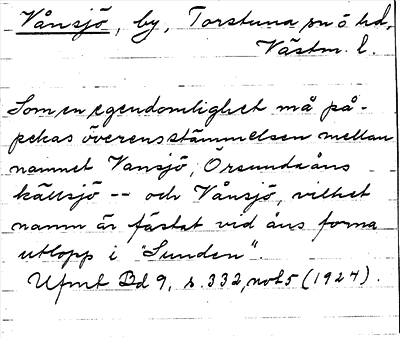 Vånsjö, by, Torstuna sn o hd,
Västm. l.
Som en egendomlighet må på-
pekas överensstämmelsen mellan
namnet Vansjö, Örsundaåns
källsjö -- och Vånsjö, vilket
namn är fästat vid åns forna
utlopp i "Sunden".
Ufmt Bd 9, s. 332, not 5 (1924).